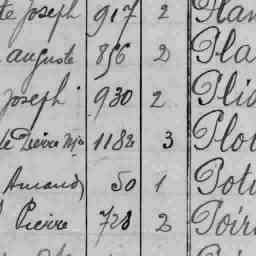 te Joseph 917 2 Plan
auguste 856 2 Pla
Joseph 930 2 Plio
de Pierre Mie 1182 3 Plou
Amand 50 1 Potu
Pierre 728 2 Poir